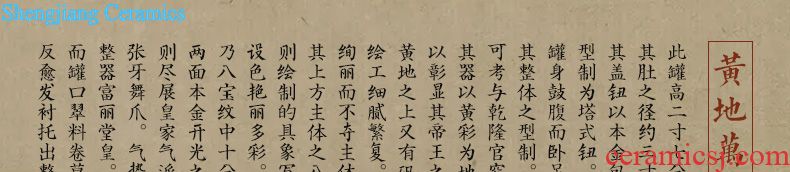 Shengjiang Ceramics
黄地萬
此罐高二寸七分
其肚之径约三寸
其盖钮以本金
型制为塔式钮。
罐身鼓腹而卧足
其整体之型制。
可考与乾隆官窑
其器以黄彩为地
以彰显其帝王之
黄地之上又有
绘工细腻繁复。
绚丽而不夺主体
其上方主体之八
则绘制的具象写
设色艳丽多彩。
乃八宝纹中十分
两面本金开光之
则尽展皇家气派
张牙舞爪。气势
整器富丽堂皇。
而罐口翠料卷草
反愈发衬托出整
ceramicsj.com